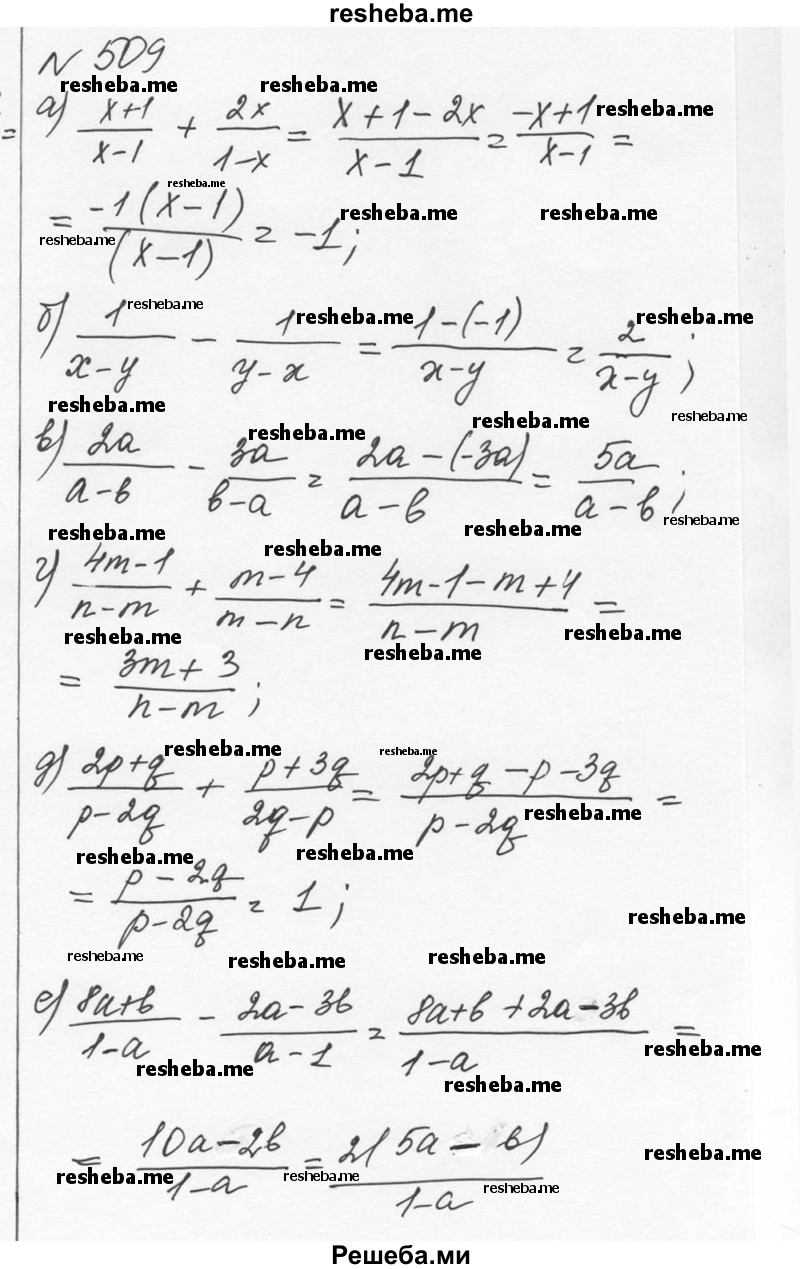 resheba.me
№ 509
resheba.me resheba.me
а) (x+1)/(x-1) + 2x/(1-x) = (x+1-2x)/(x-1) = (-x+1)/(x-1) = resheba.me
resheba.me
= -1(x-1)/(x-1) = -1; resheba.me resheba.me
resheba.me
resheba.me
б) 1/(x-y) - 1/(y-x) = (1-(-1))/(x-y) = 2/(x-y); resheba.me resheba.me
resheba.me resheba.me
resheba.me resheba.me
в) 2a/(a-b) - 3a/(b-a) = (2a-(-3a))/(a-b) = 5a/(a-b);
resheba.me resheba.me resheba.me
resheba.me
г) (4m-1)/(n-m) + (m-4)/(m-n) = (4m-1-m+4)/(n-m) =
resheba.me resheba.me resheba.me
= (3m+3)/(n-m);
resheba.me resheba.me
д) (2p+q)/(p-2q) + (p+3q)/(2q-p) = (2p+q-p-3q)/(p-2q) =
resheba.me
resheba.me resheba.me
= (p-2q)/(p-2q) = 1;
resheba.me
resheba.me resheba.me resheba.me
е) (8a+b)/(1-a) - (2a-3b)/(a-1) = (8a+b+2a-3b)/(1-a) =
resheba.me
resheba.me resheba.me
= (10a-2b)/(1-a) = 2(5a-b)/(1-a)
resheba.me
resheba.me resheba.me resheba.me
Решеба.ми